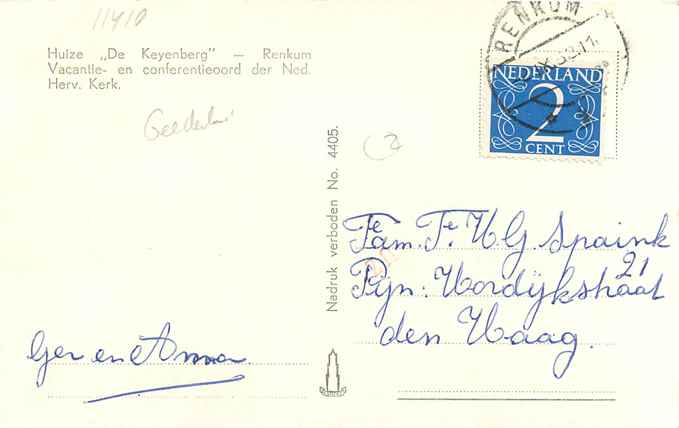 11410
Huize „De Keyenberg” — Renkum
Vacantie- en conferentieoord der Ned.
Herv. Kerk.
Nadruk verboden No. 4405.
2
RENKUM
NEDERLAND
2
CENT
Fam. F. H G. Spaink
Pijn: Hordijkstraat 21
den Haag.
Ger en Anna